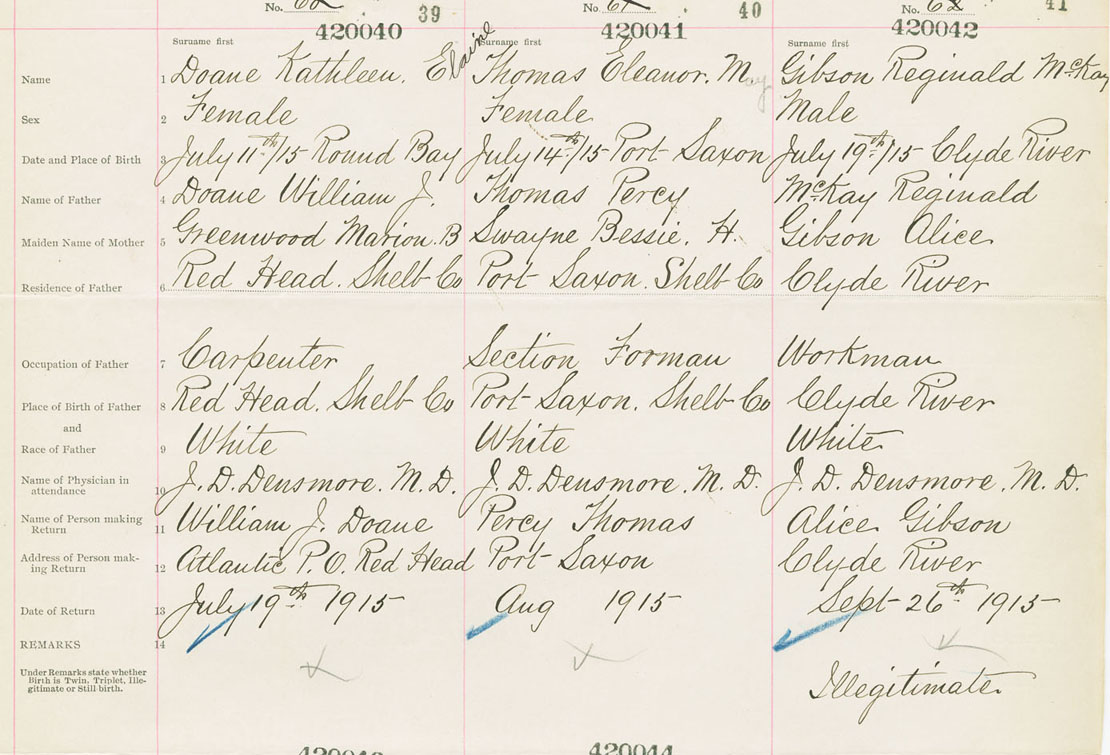 No. 60 39 No. 61 40 No. 62 41
420040 420041 420042
Surname first Surname first Surname first
Name 1 Doane Kathleen. Elaine Thomas Eleanor. May Gibson Reginald McKay
Sex 2 Female Female Male
Date and Place of Birth 3 July 11th/15 Round Bay July 14th/15 Port Saxon July 19th/15 Clyde River
Name of Father 4 Doane William J. Thomas Percy McKay Reginald
Maiden Name of Mother 5 Greenwood Marion. B Swayne Bessie. H. Gibson Alice
Residence of Father 6 Red Head. Shelb Co Port Saxon. Shelb Co Clyde River
Occupation of Father 7 Carpenter Section Forman Workman
Place of Birth of Father 8 Red Head. Shelb Co Port Saxon. Shelb Co Clyde River
and
Race of Father 9 White White White
Name of Physician in
attendance 10 J. D. Densmore. M. D. J. D. Densmore. M. D. J. D. Densmore. M. D.
Name of Person making
Return 11 William J. Doane Percy Thomas Alice Gibson
Address of Person mak-
ing Return 12 Atlantic P. O. Red Head Port Saxon Clyde River
Date of Return 13 July 19th 1915 Aug 1915 Sept 26th 1915
REMARKS 14
Under Remarks state whether
Birth is Twin, Triplet, Ille-
gitimate or Still-birth. Illegitimate
420044